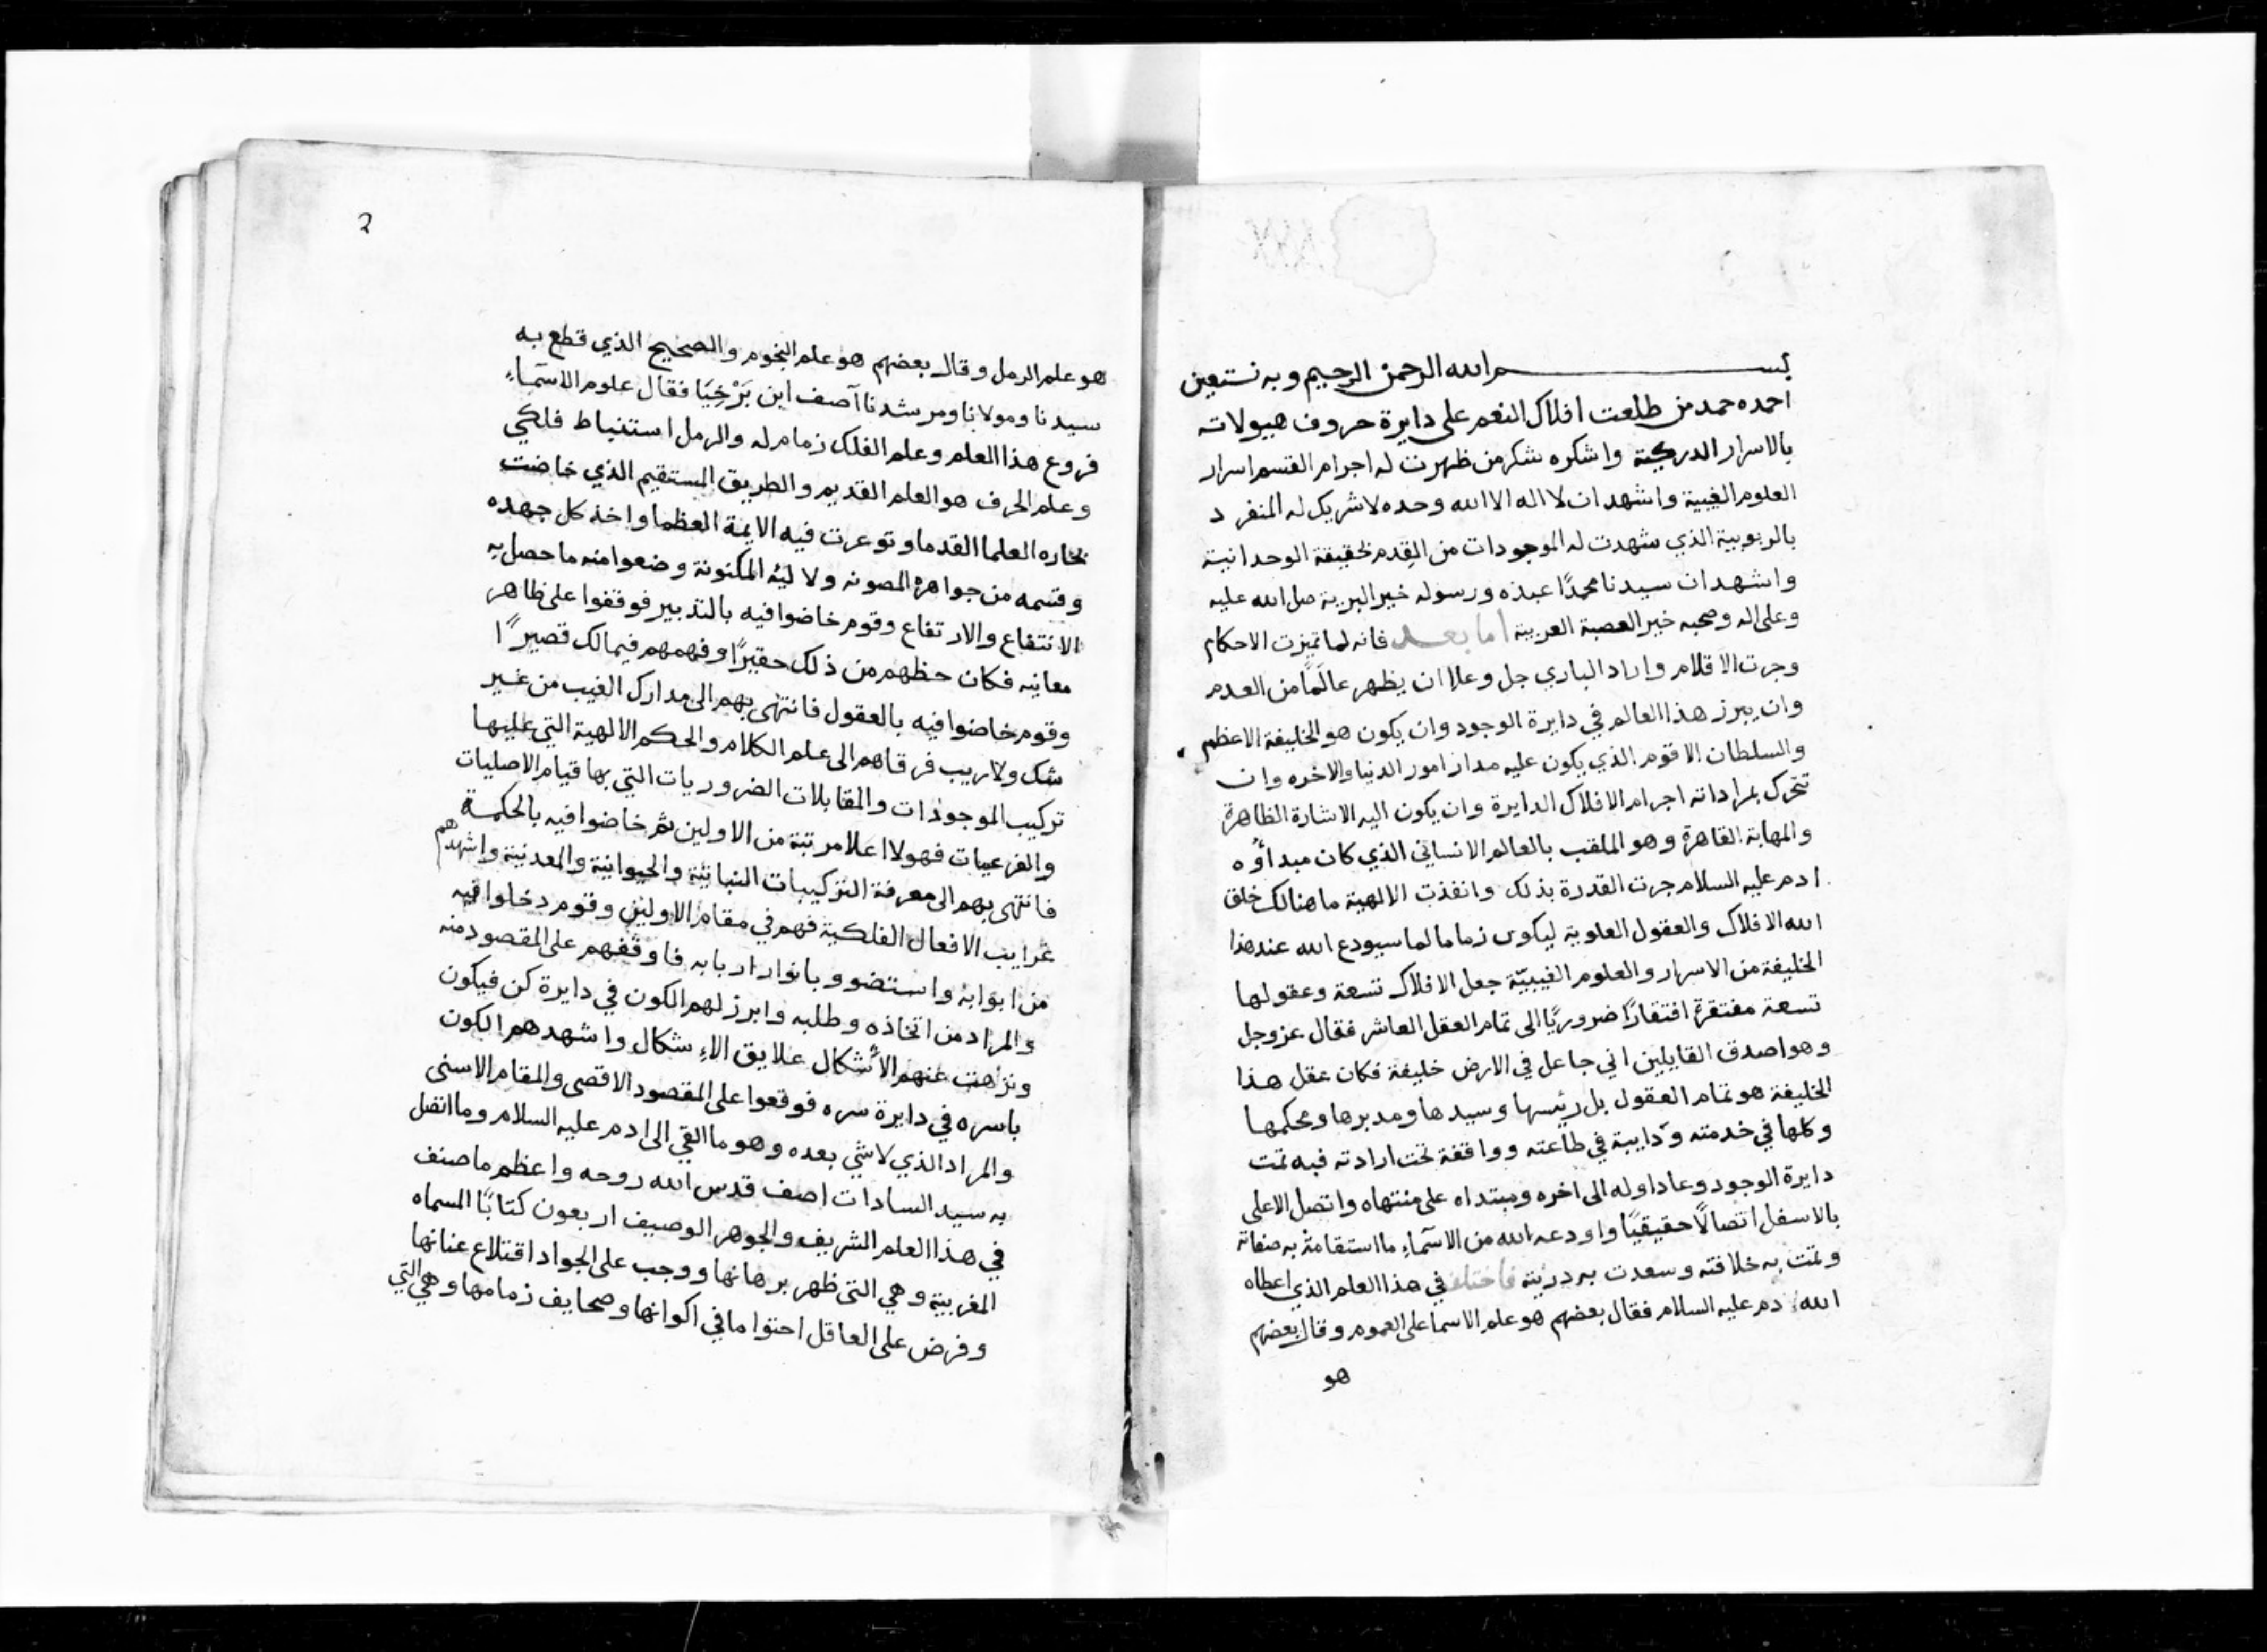 بسم الله الرحمن الرحيم وبه نستعين
احمده حمد من طلعت افلاك النعم على دايرة حروف هيولاته
بالاسرار الدركية واشكره شكر من ظهرت له اجرام القسم اسرار
العلوم الغيبية واشهد ان لا اله الا الله وحده لا شريك له المنفرد
بالربوبية الذي شهدت له الموجودات من القِدم بحقيقة الوحدانية
واشهد ان سيدنا محمدًا عبده ورسوله خير البرية صل الله عليه
وعلى اله وصحبه خير العصبة العربية أما بعد فانه لما تميزت الاحكام
وجرت الاقلام واراد الباري جل وعلا ان يظهر عالَمًا من العدم
وان يبرز هذا العالم في دايرة الوجود وان يكون هو الخليفة الاعظم
والسلطان الاقوم الذي يكون عليه مدار امور الدنيا والاخره وان
تتحرك بمراداته اجرام الافلاك الدايرة وان يكون اليه الاشارة الظاهرة
والمهابة القاهرة وهو الملقب بالعالم الانساني الذي كان مبداؤه
ادم عليه السلام جرت القدرة بذلك وانفذت الالهية ما هنالك خلق
الله الافلاك والعقول العلوية ليكون زماما لما سيودع الله عند هذا
الخليفة من الاسرار والعلوم الغيبيّة جعل الافلاك تسعة وعقولها
تسعة مفتقرة افتقارًا ضروريًا الى تمام العقل العاشر فقال عز وجل
وهو اصدق القايلين اني جاعل في الارض خليفة فكان عقل هذا
الخليفة هو تمام العقول بل رئيسها وسيدها ومدبرها ومحكمها
وكلها في خدمته ودايبة في طاعته وواقفة تحت ارادته فبه تمت
دايرة الوجود وعاد اوله الى اخره ومبتداه على منتهاه واتصل الاعلى
بالاسفل اتصالًا حقيقيًا واودعه الله من الاسمآء ما استقامت به صفاته
وتمت به خلافته وسعدت به دريته فاختلف في هذا العلم الذي اعطاه
الله ادم عليه السلام فقال بعضهم هو علم الاسما على العموم وقال بعضهم
هو
2
هو علم الرمل وقال بعضهم هو علم النجوم والصحيح الذي قطع به
سيدنا ومولانا ومرشدنا آصف ابن بَرْخِيَا فقال علوم الاسمآء
فروع هذا العلم وعلم الفلك زمام له والرمل استنباط فلكي
وعلم الحرف هو العلم القديم والطريق المستقيم الذي خاضت
بحاره العلما القدما وتوعرت فيه الايمة العظما واخذ كل جهده
وقسمه من جواهره المصونه ولاليه المكنونة وضعوا منه ما حصل به
الانتفاع والارتفاع وقوم خاضوا فيه بالتدبير فوقفوا على ظاهر
معانيه فكان حظهم من ذلك حقيرًا وفهمهم فيمالك قصيرًا
وقوم خاضوا فيه بالعقول فانتهى بهم الى مدارك الغيب من غير
شك ولا ريب فرقاهم الى علم الكلام والحكم الالهية التي عليها
تركيب الموجودات والمقابلات الضروريات التي بها قيام الاصليات
والفرعيات فهولا اعلا مرتبة من الاولين ثم خاضوا فيه بالحكمة
فانتهى بهم الى معرفة التركيبات النباتية والحيوانية والمعدنية واشهدهم
غرايب الافعال الفلكية فهم في مقام الاولين وقوم دخلوا فيه
من ابوابه واستضوو بانوار اربابه فاوقفهم على المقصود منه
والمراد من اتخاذه وطلبه وابرز لهم الكون في دايرة كن فيكون
ونزهت عنهم الأشكال علايق الاءشكال واشهدهم الكون
باسره في دايرة سره فوقعوا على المقصود الاقصى والمقام الاسنى
والمراد الذي لا شي بعده وهو ما القي الى ادم عليه السلام وما اتصل
به سيد السادات اصف قدس الله روحه واعظم ما صنف
في هذا العلم الشريف والجوهر الوصيف اربعون كتابًا المسماه
المغربية وهي التى ظهر برهانها ووجب على الجواد اقتلاع عنانها
وفرض على العاقل احتوا ما في اكوانها وصحايف زمامها وهي التي